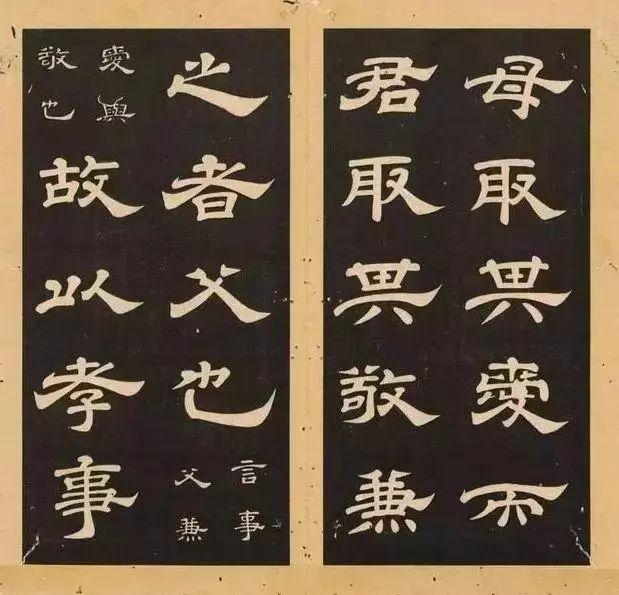 母取其愛而
君取其敬兼
之者父也
言事
父兼
愛與
敬也
故以孝事